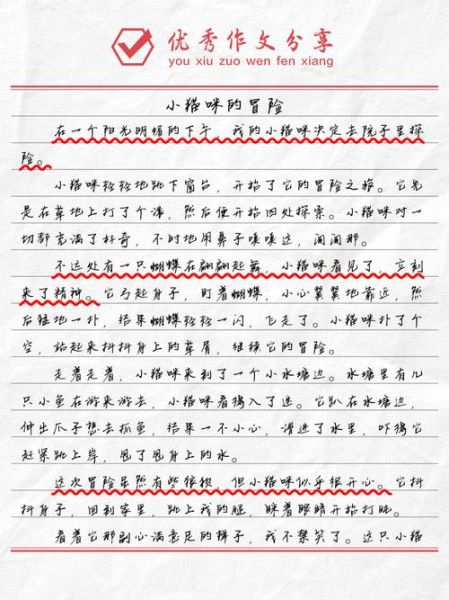 优秀作文分享
you xiu zuo wen fen xiang
小猫咪的冒险
在一个阳光明媚的下午，我的小猫咪决定去院子里探
险。
小猫咪轻轻地跳下窗台，开始了它的冒险之旅。它先
是在草地上打了个滚，然后便开始四处探索。小猫咪对一
切都充满了好奇，不时地用鼻子嗅嗅这，闻闻那。
不远处有一只蝴蝶在翩翩起舞，小猫咪看见了，立刻
来了精神。它弓起身子，盯着蝴蝶，小心翼翼地靠近，然
后猛地一扑，结果蝴蝶轻轻一闪，飞走了。小猫咪扑了个
空，站起来抖抖身上的草屑，继续它的冒险。
走着走着，小猫咪来到了一个小水塘边。水塘里有几
只小鱼在游来游去，小猫咪看得入了迷。它趴在水塘边，
伸出爪子想去抓鱼，结果一不小心，滑进了水里，吓得它
赶紧跳上岸，甩了甩身上的水。
这次冒险虽然有些狼狈，但小猫咪似乎很开心。它抖
抖身子，回到家里，跳上我的腿，眯着眼睛开始打盹。
看着它那副心满意足的样子，我不禁笑了。这只小猫